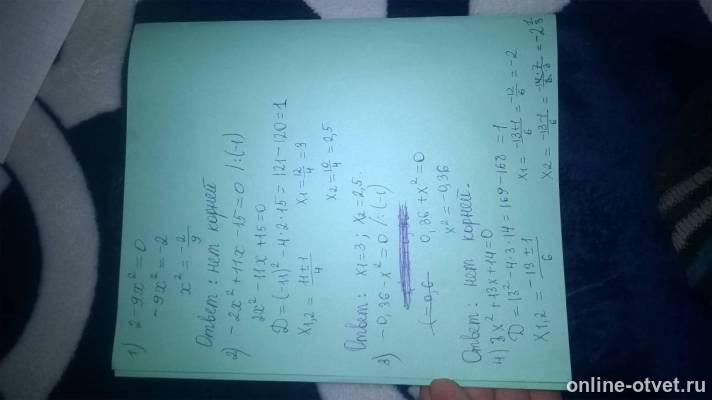 1) 2-9x²=0
-9x²=-2
x²=-2/9
Ответ: нет корней
2) -2x²+11x-15=0 /:(-1)
2x²-11x+15=0
D=(-11)²-4·2·15=121-120=1
x1,2=11±1/4 x1=12/4=3
x2=10/4=2,5
Ответ: x1=3; x2=2,5.
3) -0,36-x²=0 /:(-1)
(=0,6 0,36+x²=0
x²=-0,36
Ответ: нет корней.
4) 3x²+13x+14=0
D=13²-4·3·14=169-168=1
x1,2=-13±1/6 x1=-13+1/6=-12/6=-2
x2=-13-1/6=-14·7/6·3=-2 1/3
online-otvet.ru